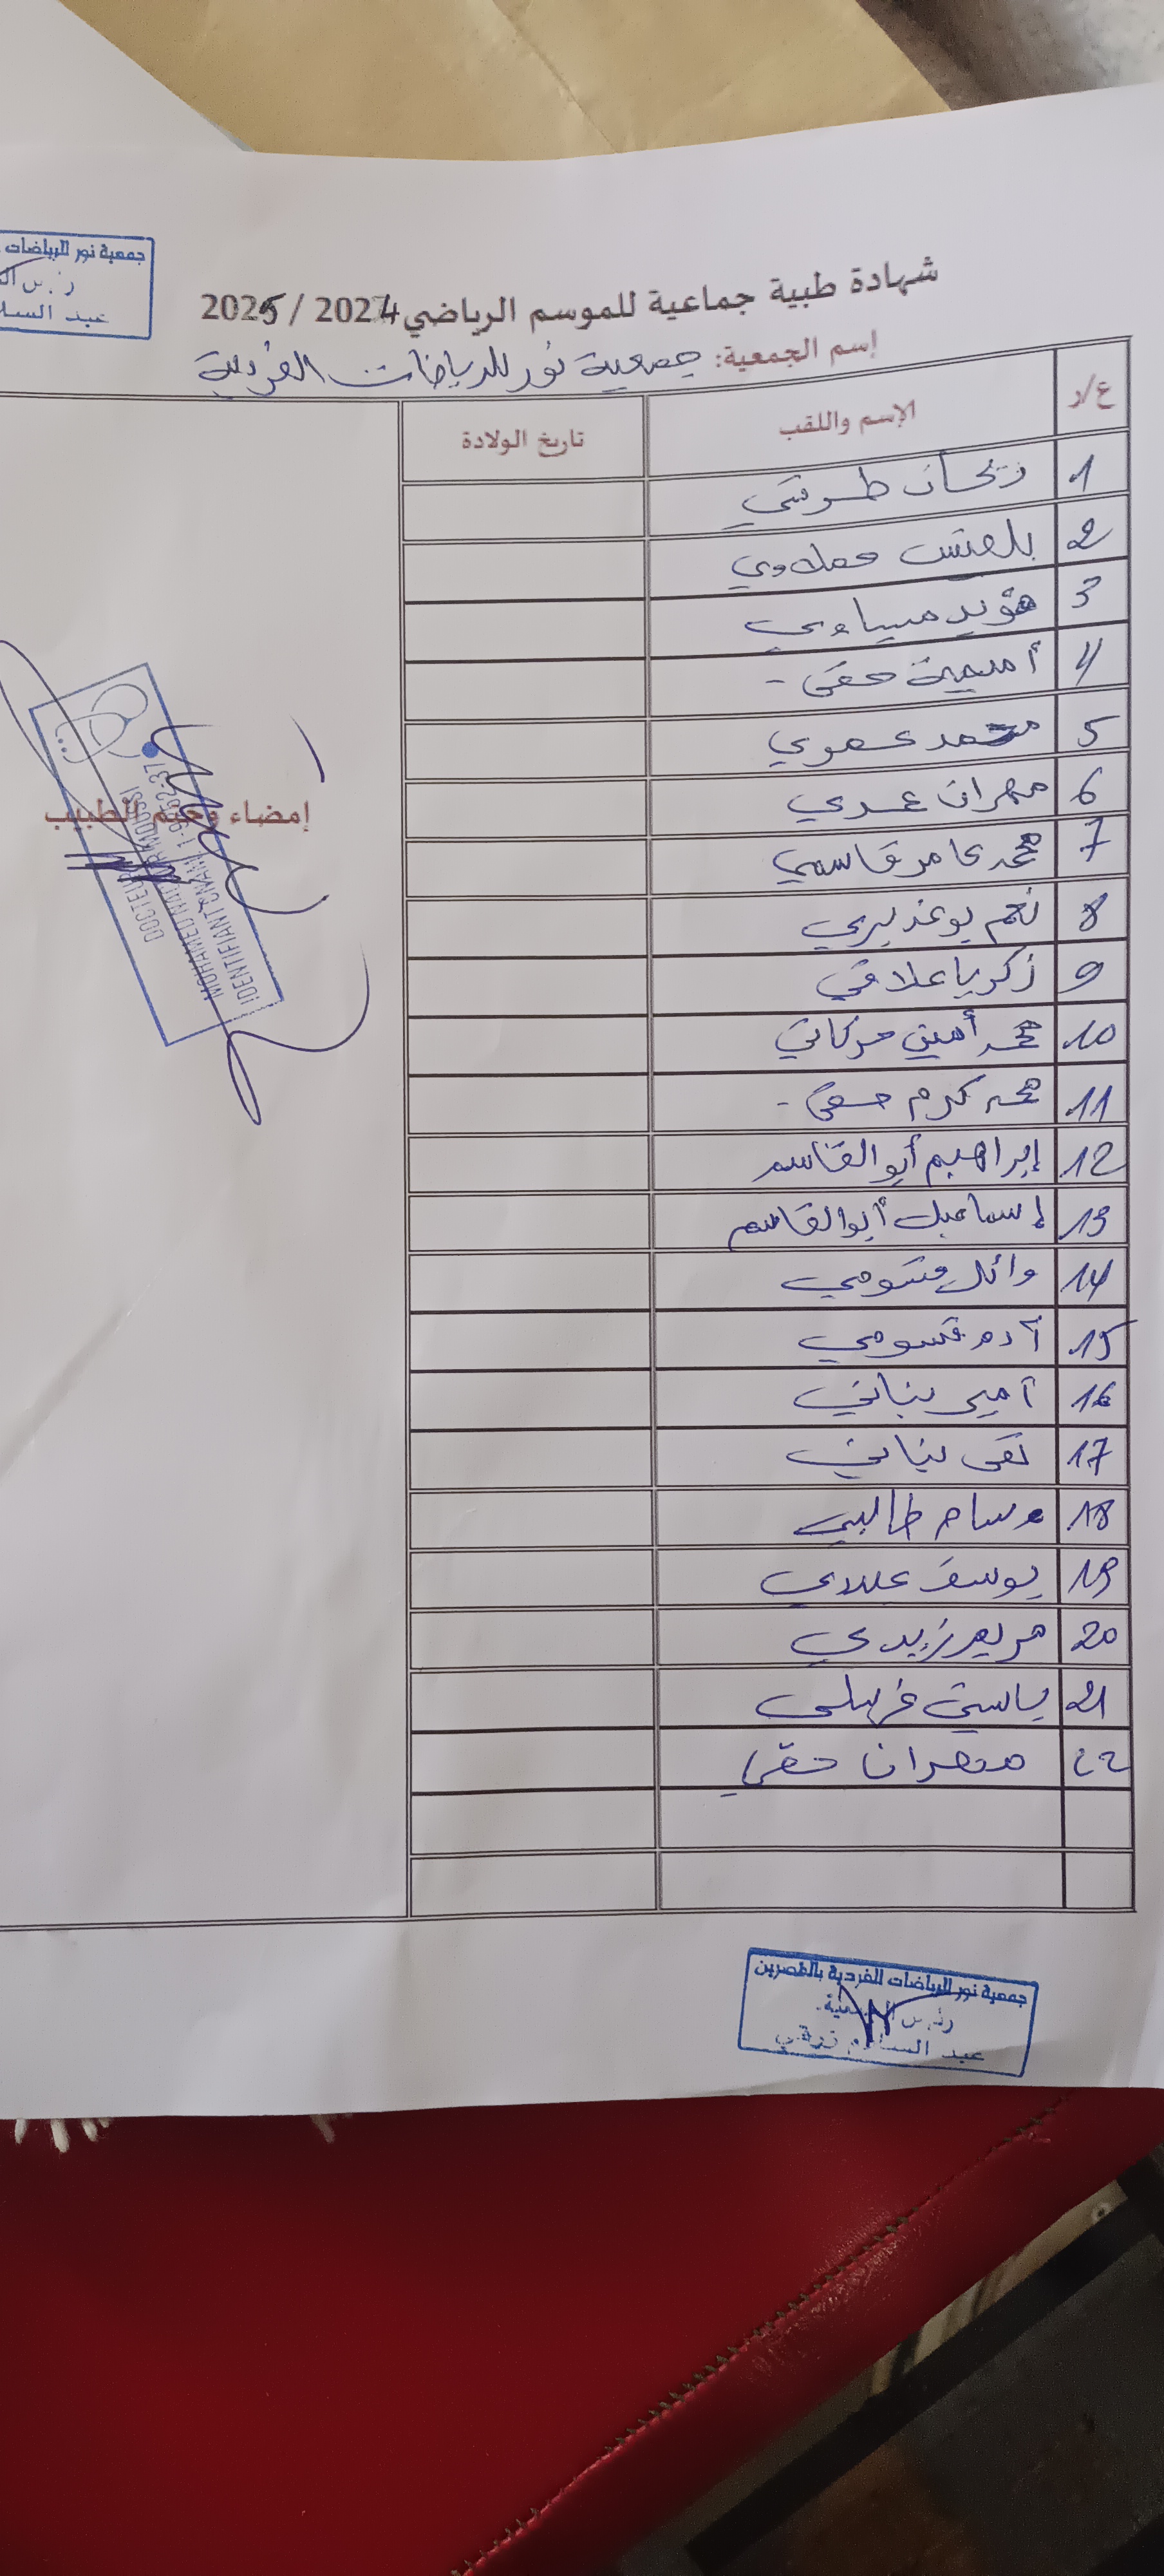 جمعية نور للرياضات
عبد السلا
شهادة طبية جماعية للموسم الرياضي 2024 / 2025
إسم الجمعية: جمعية نور للرياضات الفردية
ع/ر الإسم واللقب تاريخ الولادة
1
2
3 مؤيد عيساوي
4 أميمة حقي -
5 محمد عموي
6 مهران عبدي
7 محمد عامر قاسمي
8 بوغديري
9 زكرياء علاقي
10 محمد أمين حركاتي
11 محمد كرم حقي -
12 إبراهيم أبو القاسم
13 إسماعيل أبو القاسم
14 وائل قسومي
15 آدم قسومي
16 أمير بناني
17 تقى بناني
18 وسام طالبي
19 يوسف عبيدي
20 مريم زيدي
21 ياسين
22 حقي
إمضاء وختم الطبيب
DOCTEUR
MOHAMED MOUSSI
IDENTIFIANT CNAM
جمعية نور للرياضات الفردية بالقصرين
رئيس الجمعية
عبد السلام زرقي